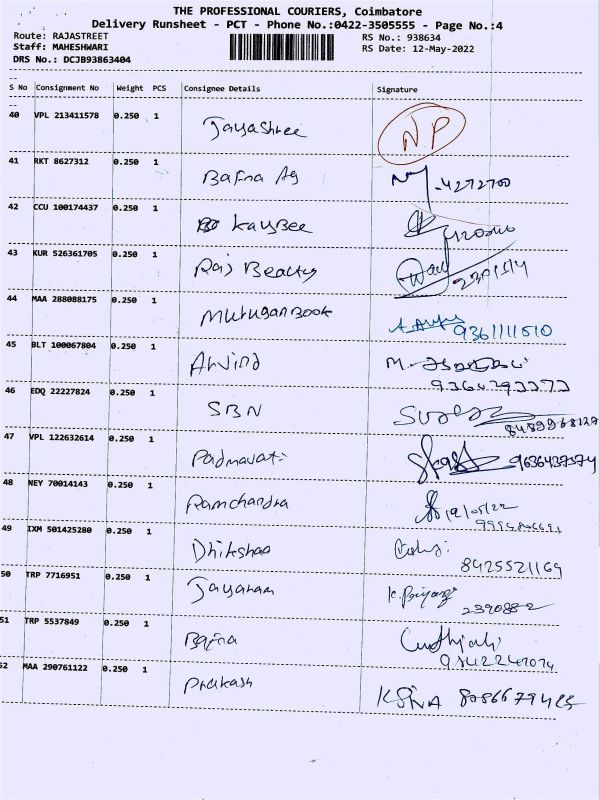 THE PROFESSIONAL COURIERS, Coimbatore
Delivery Runsheet - PCT - Phone No.:0422-3505555 - Page No.:4
Route: RAJASTREET RS No.: 938634
Staff: MAHESHWARI RS Date: 12-May-2022
DRS No.: DCJB93863404
S No Consignment No Weight PCS Consignee Details Signature
40 VPL 213411578 0.250 1 Jayashree NP
41 RKT 8627312 0.250 1 Bafna Ag 4272700
42 CCU 100174437 0.250 1 KayBee
43 KUR 526361705 0.250 1 Raj Beauty
44 MAA 288088175 0.250 1 Murugan Book 9361111510
45 BLT 100067804 0.250 1 Arvind M.
9364293373
46 EDQ 22227824 0.250 1 SBN
8489968127
47 VPL 122632614 0.250 1 Padmavati 9636437574
48 NEY 70014143 0.250 1 Ramchandra 12/05/22
49 IXM 501425280 0.250 1 Dhikshaa
8425521169
50 TRP 7716951 0.250 1 Jayaram
2390882
51 TRP 5537849 0.250 1 Bafna
9842247074
52 MAA 290761122 0.250 1 Prakash